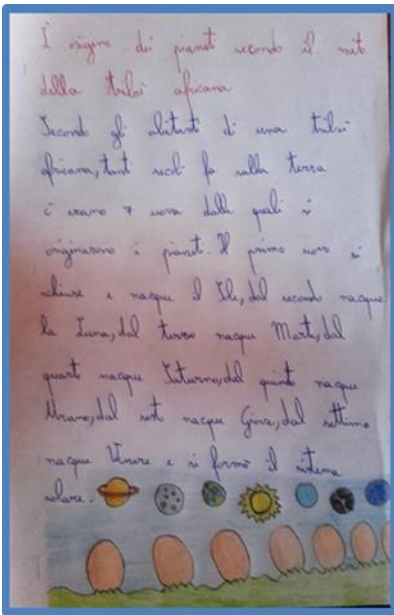 L'origine dei pianeti secondo il mito
della tribù africana
Secondo gli abitanti di una tribù
africana, tanti secoli fa sulla terra
c'erano 7 uova dalle quali si
originarono i pianeti. Il primo uovo si
schiuse e nacque il Sole, dal secondo nacque
la Luna, dal terzo nacque Marte, dal
quarto nacque Saturno, dal quinto nacque
Urano, dal sesto nacque Giove, dal settimo
nacque Venere e si formò il sistema
solare.